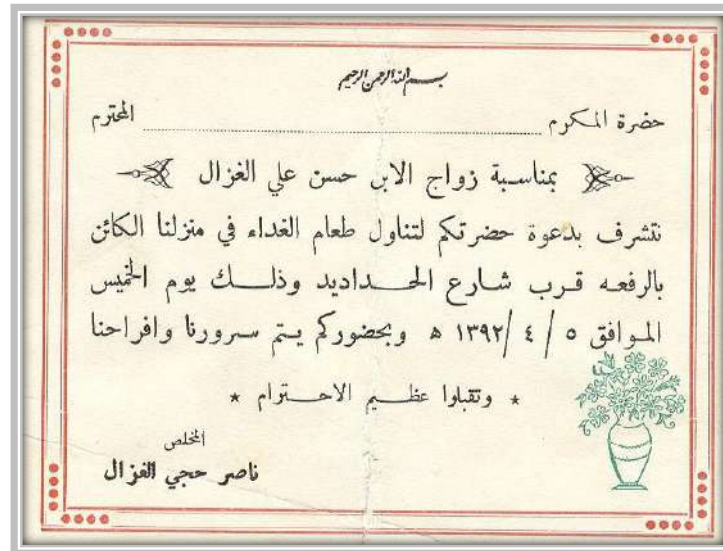 بسم الله الرحمن الرحيم
حضرة المكرم ........................ المحترم
بمناسبة زواج الابن حسن علي الغزال
نتشرف بدعوة حضرتكم لتناول طعام الغداء في منزلنا الكائن
بالرفعه قرب شارع الحداديد وذلك يوم الخميس
الموافق ٥ / ٤ / ١٣٩٢ ه وبحضوركم يتم سرورنا وافراحنا
* وتقبلوا عظيم الاحترام *
المخلص
ناصر حجي الغزال